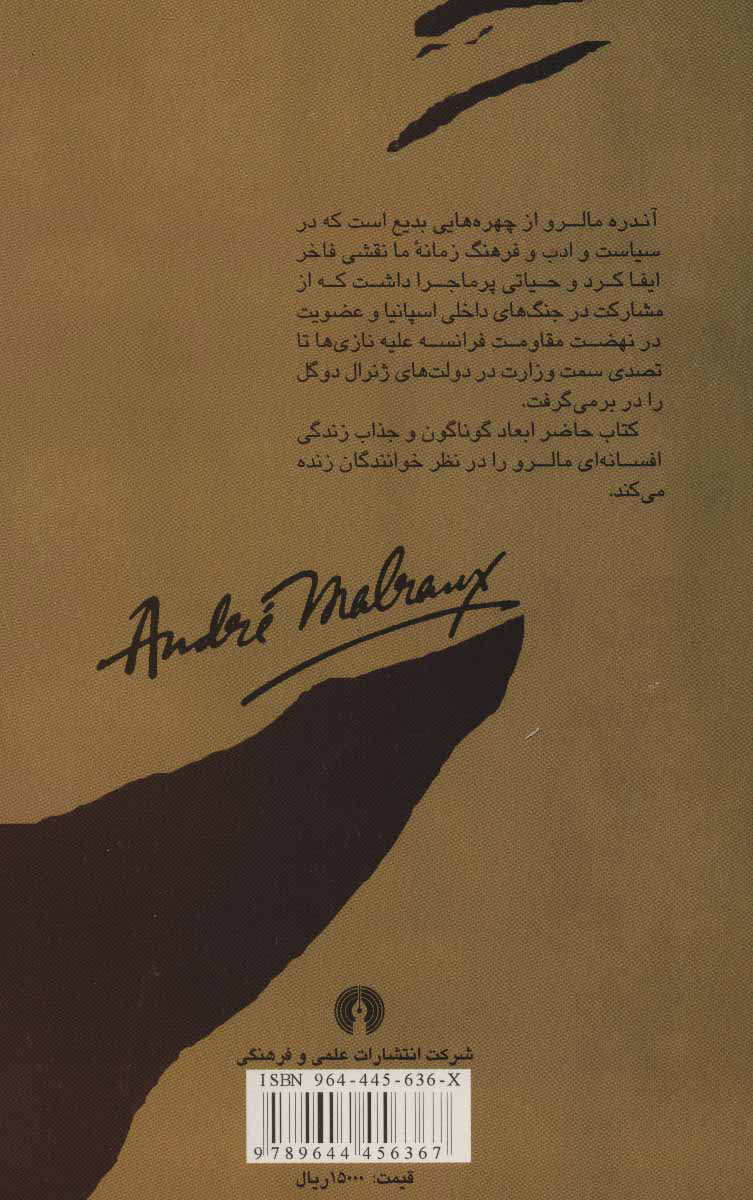 آندره مالرو از چهره‌هایی بدیع است که در
سیاست و ادب و فرهنگ زمانهٔ ما نقشی فاخر
ایفا کرد و حیاتی پرماجرا داشت که از
مشارکت در جنگ‌های داخلی اسپانیا و عضویت
در نهضت مقاومت فرانسه علیه نازی‌ها تا
تصدی سمت وزارت در دولت‌های ژنرال دوگل
را در برمی‌گرفت.
کتاب حاضر ابعاد گوناگون و جذاب زندگی
افسانه‌ای مالرو را در نظر خوانندگان زنده
می‌کند.
André Malraux
شرکت انتشارات علمی و فرهنگی
ISBN 964-445-636-X
9 789644 456367
قیمت: ۱۵۰۰۰ ریال